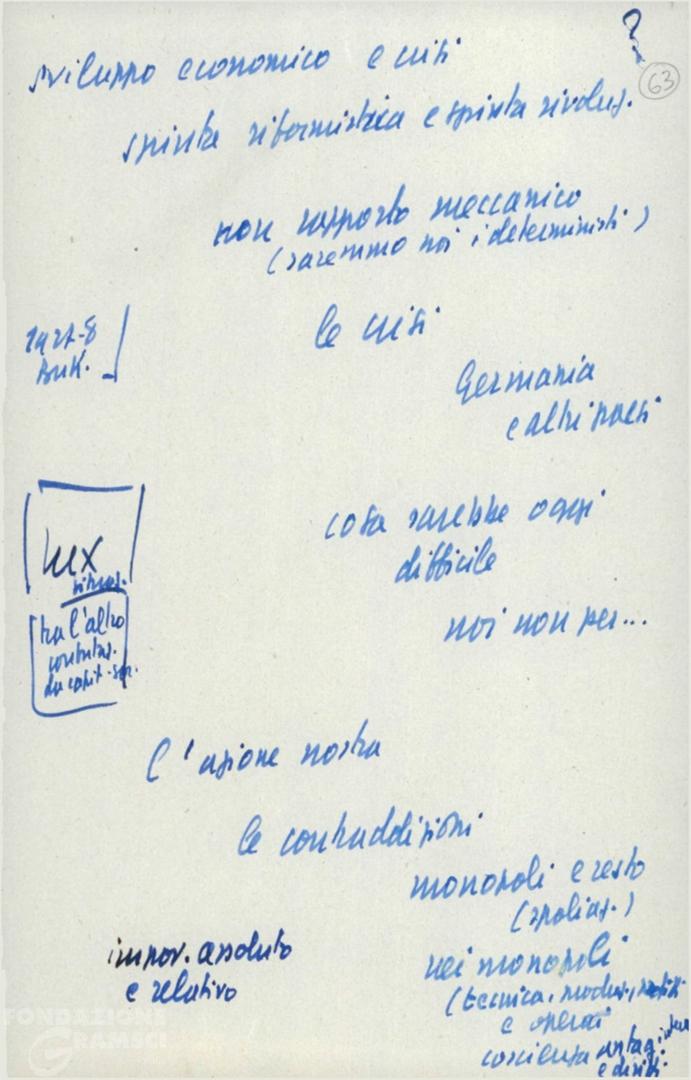 ?
63
sviluppo economico e crisi
spinta riformistica e spinta rivoluz.
non rapporto meccanico
(saremmo noi i deterministi)
1927-8
Buk.
le crisi
Germania
e altri paesi
cosa sarebbe oggi
difficile
noi non per...
tra l'altro
contrad.
l'azione nostra
le contraddizioni
monopoli e resto
(spoliaz.)
impov. assoluto
e relativo
nei monopoli
(tecnica, produz.,
e operai
coscienza antag.
e diritti
FONDAZIONE
GRAMSCI